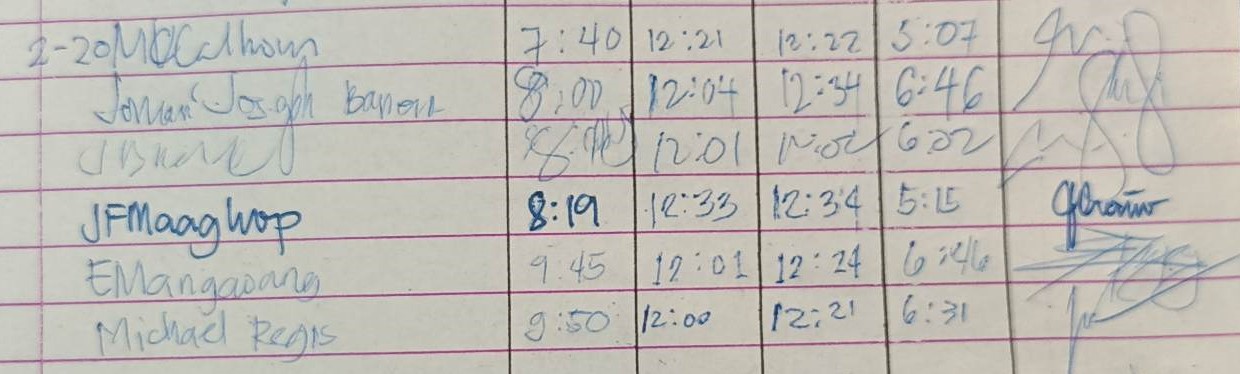 2-20 MCCalhoun 7:40 12:21 12:22 5:07
Joseph 8:00 12:04 12:34 6:46
12:01 6:02
JFMaaghop 8:19 12:33 12:34 5:15
EMangaoang 9:45 12:01 12:24 6:46
Michael Regis 9:50 12:00 12:21 6:31